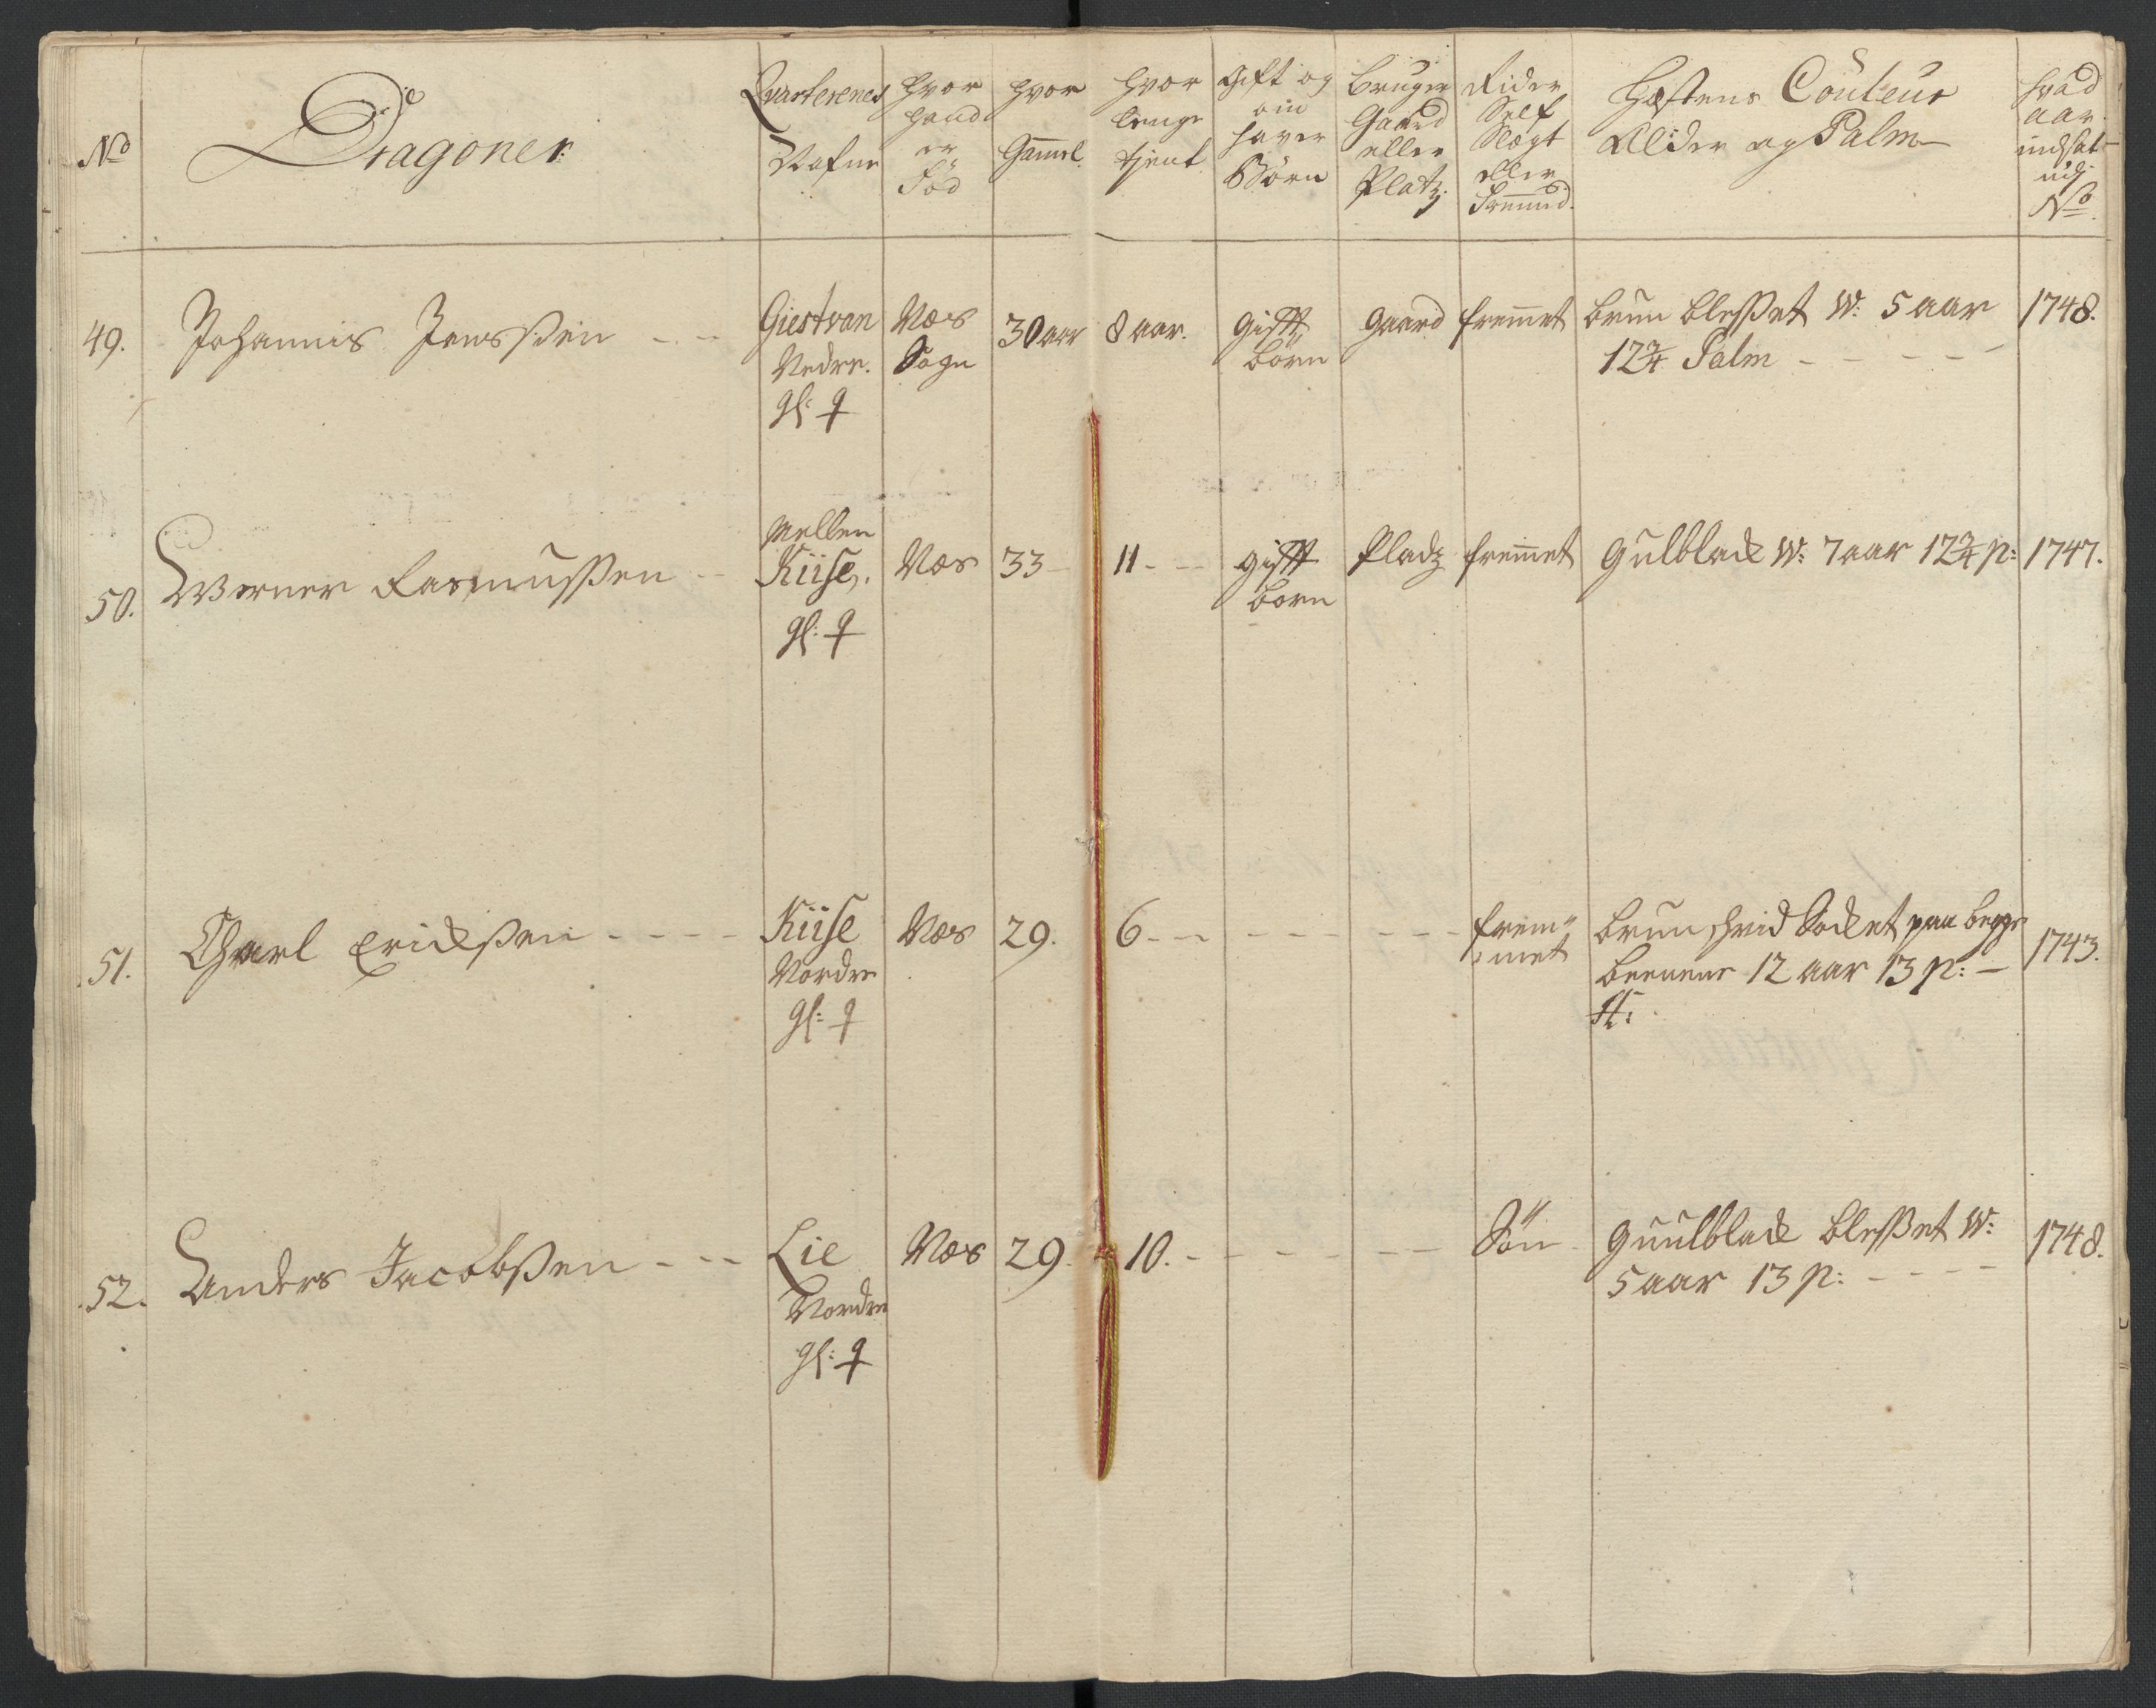 No
Dragoner.
Qvarterenes
Nafne
hvor
hand
er
Föd
hvor
Gammel
hvor
lenge
tjent
Gift og
om
haver
Börn
Bruger
Gaard
eller
Platz.
Rider
Self
Slegt
eller
fremmed.
Hestens Couleur
Alder og Palm
hvad
aar
indsat
udj
No
49. Johannis Jensßen
Giestvan
Nedre.
gl: q
Næs
Sogn
30 aar
8 aar.
gifft
börn
gaard
fremmet
brun bleßet W: 5 aar
12 3/4 Palm
1748.
50. Werner Rasmußen
Mellem
Kiise.
gl: q
Næs
33
11
gifft
börn
Pladz
fremmet
Gulblack W: 7 aar 12 3/4 p:
1747.
51. Charl Erickßen
Kiise
Nordre
gl: q
Næs
29.
6
frem
met
brun hvid Socket paa begge
beenene 12 aar 13 p:
H:
1743.
52. Anders Jacobßen
Lie
Nordre
gl: q
Næs
29.
10.
Sön
Guulblack bleßet W:
5 aar 13 p:
1748.